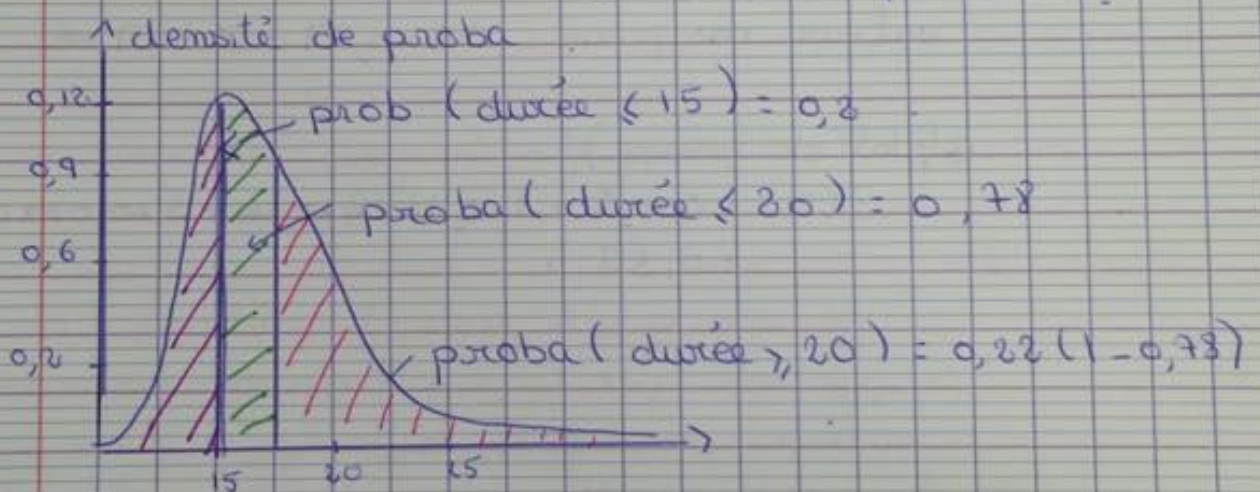 densité de proba
0,12
prob (durée ≤ 15) = 0,2
0,9
proba (durée ≤ 20) = 0,78
0,6
0,2
proba (durée ≥ 20) = 0,22 (1 - 0,78)
15
20
25